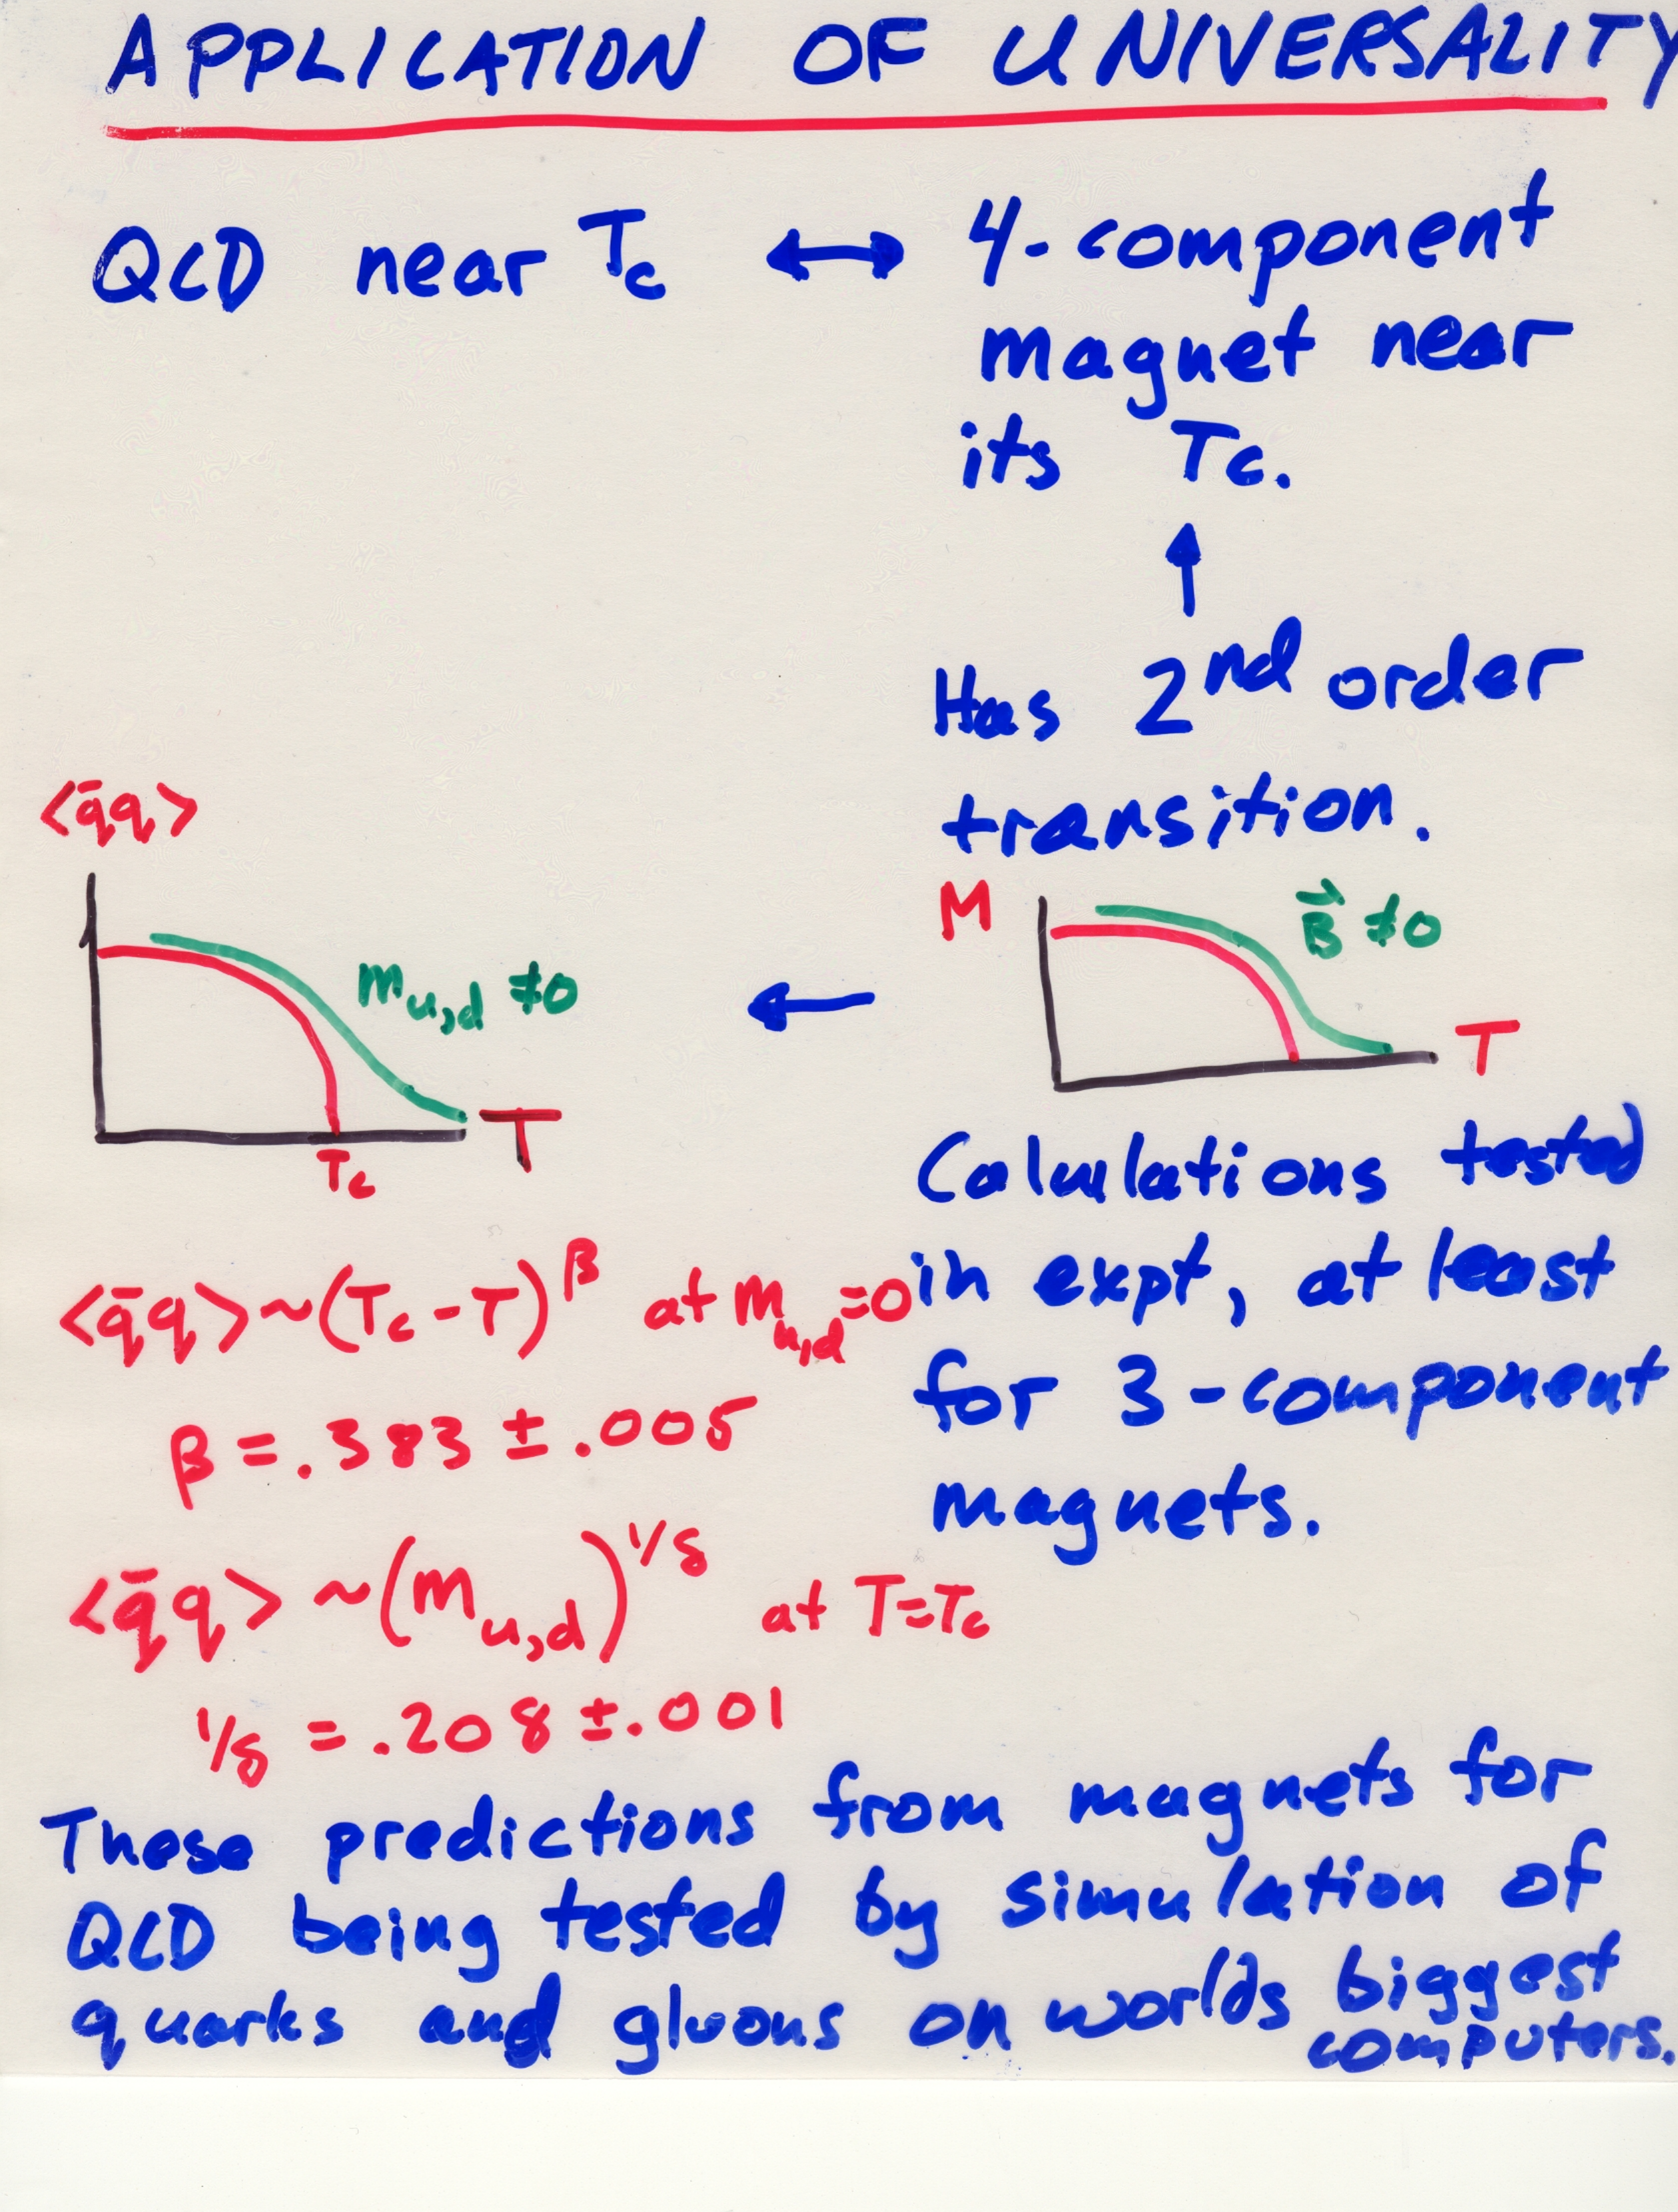 APPLICATION OF UNIVERSALITY
QCD near Tc ↔ 4-component
magnet near
its Tc.
↑
Has 2nd order
transition.
<q̄q>
m u,d ≠0
T
Tc
←
M
B⃗ ≠0
T
Calculations tested
in expt, at least
for 3-component
magnets.
<q̄q> ~ (Tc - T)^β at m u,d =0
β = .383 ± .005
<q̄q> ~ (m u,d)^1/δ at T=Tc
1/δ = .208 ± .001
These predictions from magnets for
QCD being tested by simulation of
quarks and gluons on worlds biggest
computers.